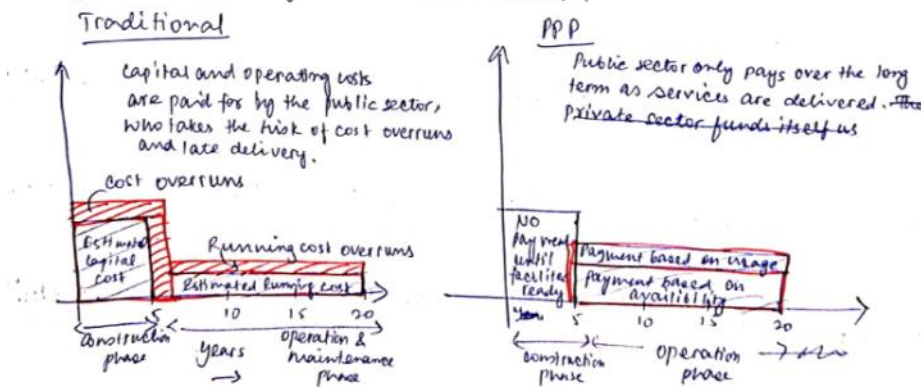 Traditional
Capital and operating costs
are paid for by the public sector,
who takes the risk of cost overruns
and late delivery.
cost overruns
Estimated
capital
cost
Running cost overruns
Estimated Running cost
5 10 15 20
construction
phase
years
operation &
maintenance
phase
PPP
Public sector only pays over the long
term as services are delivered. The
private sector funds itself us
NO
payment
until
facilites
ready
Payment based on usage
payment based on
availibility
5 10 15 20
construction
phase
operation
phase